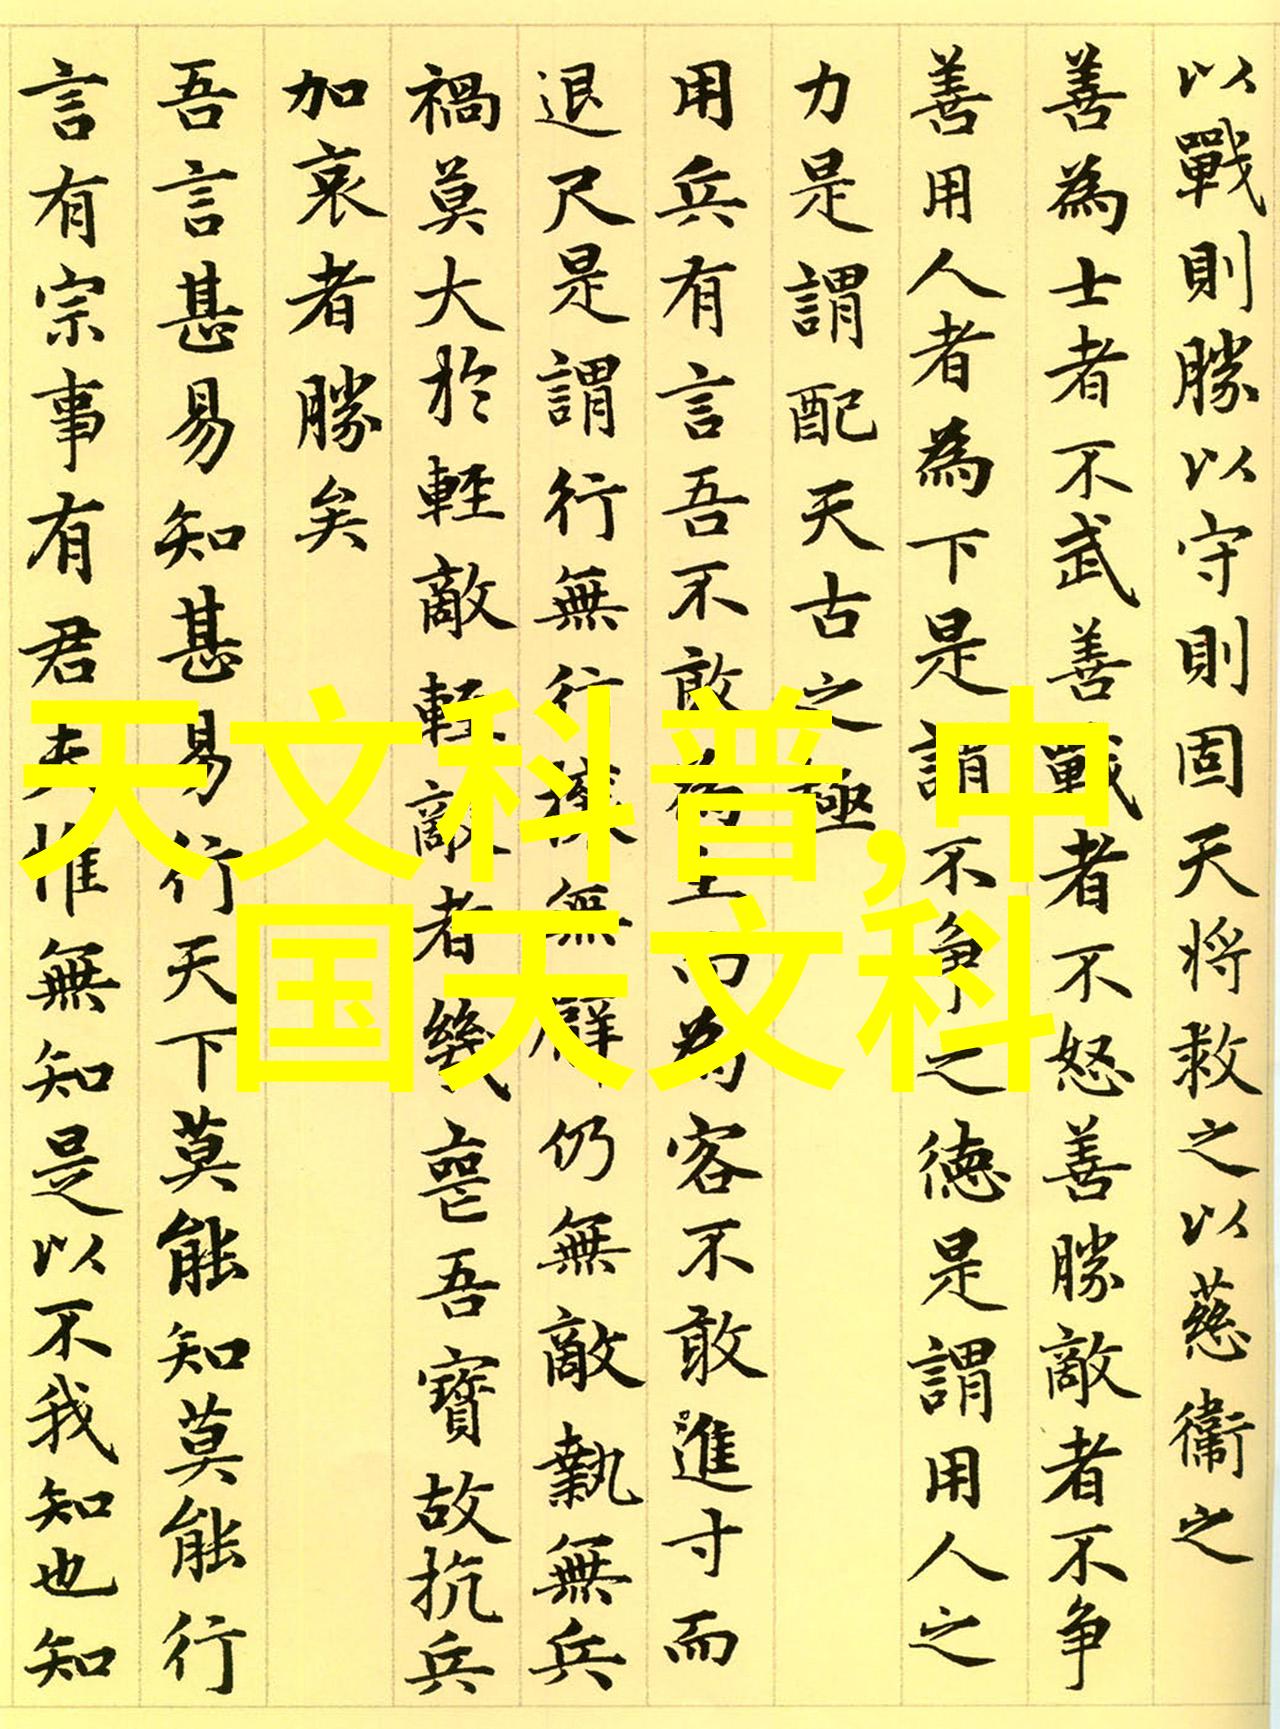 以戰則勝以守則固天将救之以慈衞之
善為士者不武善戰者不怒善勝敵者不争
善用人者為下是謂不争之德是謂用人之
力是謂配天古之極
用兵有言吾不敢為主而為客不敢進寸而
退尺是謂行無行攘無臂仍無敵執無兵
禍莫大於輕敵輕敵者幾喪吾寶故抗兵
加哀者勝矣
吾言甚易知甚易行天下莫能知莫能行
言有宗事有君夫惟無知是以不我知也知
天文科普,中
国天文科